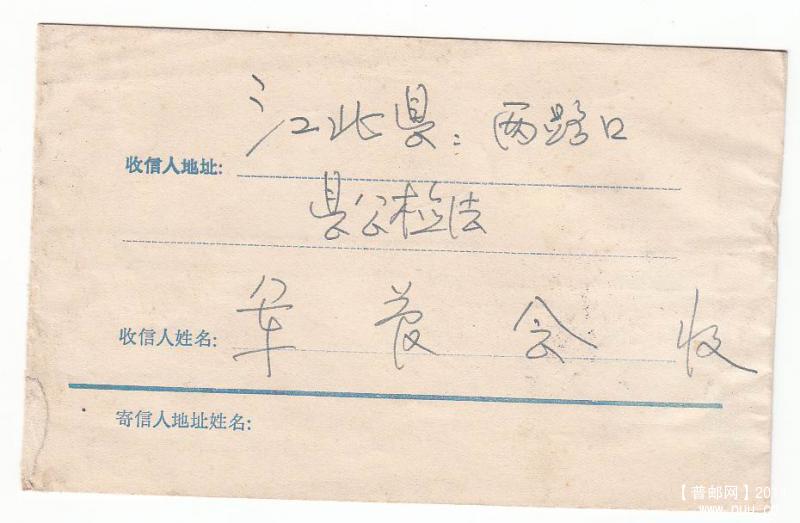 收信人地址: 江北县: 两路口
县公检法
收信人姓名: 军管会 收
寄信人地址姓名:
【普邮网】